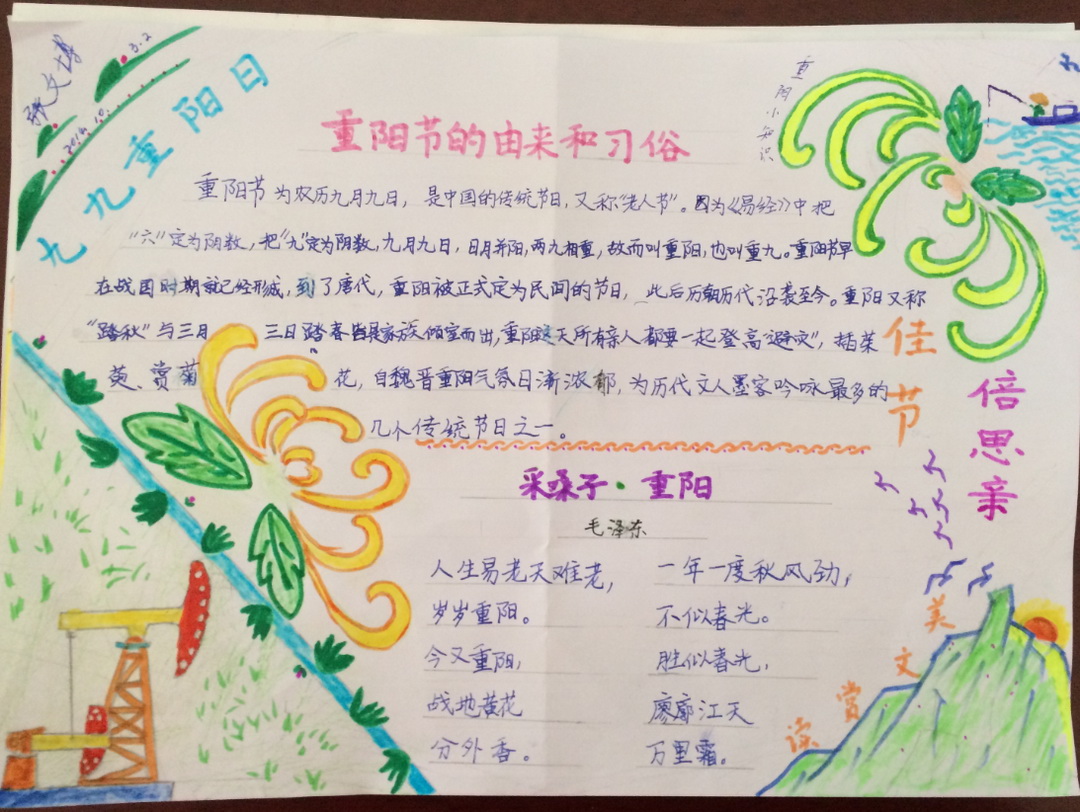 张文博
3.2
2014.10.
九九重阳日
重阳小知识
重阳节的由来和习俗
重阳节为农历九月九日，是中国的传统节日，又称“老人节”。因为《易经》中把
“六”定为阴数，把“九”定为阴数，九月九日，日月并阳，两九相重，故而叫重阳，也叫重九。重阳节早
在战国时期就已经形成，到了唐代，重阳被正式定为民间的节日，此后历朝历代沿袭至今。重阳又称
“踏秋”与三月 三日踏春皆是家族倾室而出，重阳这天所有亲人都要一起登高“避灾”，插茱
萸、赏菊 花，自魏晋重阳气氛日渐浓郁，为历代文人墨客吟咏最多的
几个传统节日之一。
佳节
倍思亲
采桑子·重阳
毛泽东
人生易老天难老，
岁岁重阳。
今又重阳，
战地黄花
分外香。
一年一度秋风劲，
不似春光。
胜似春光，
廖廓江天
万里霜。
美文赏读